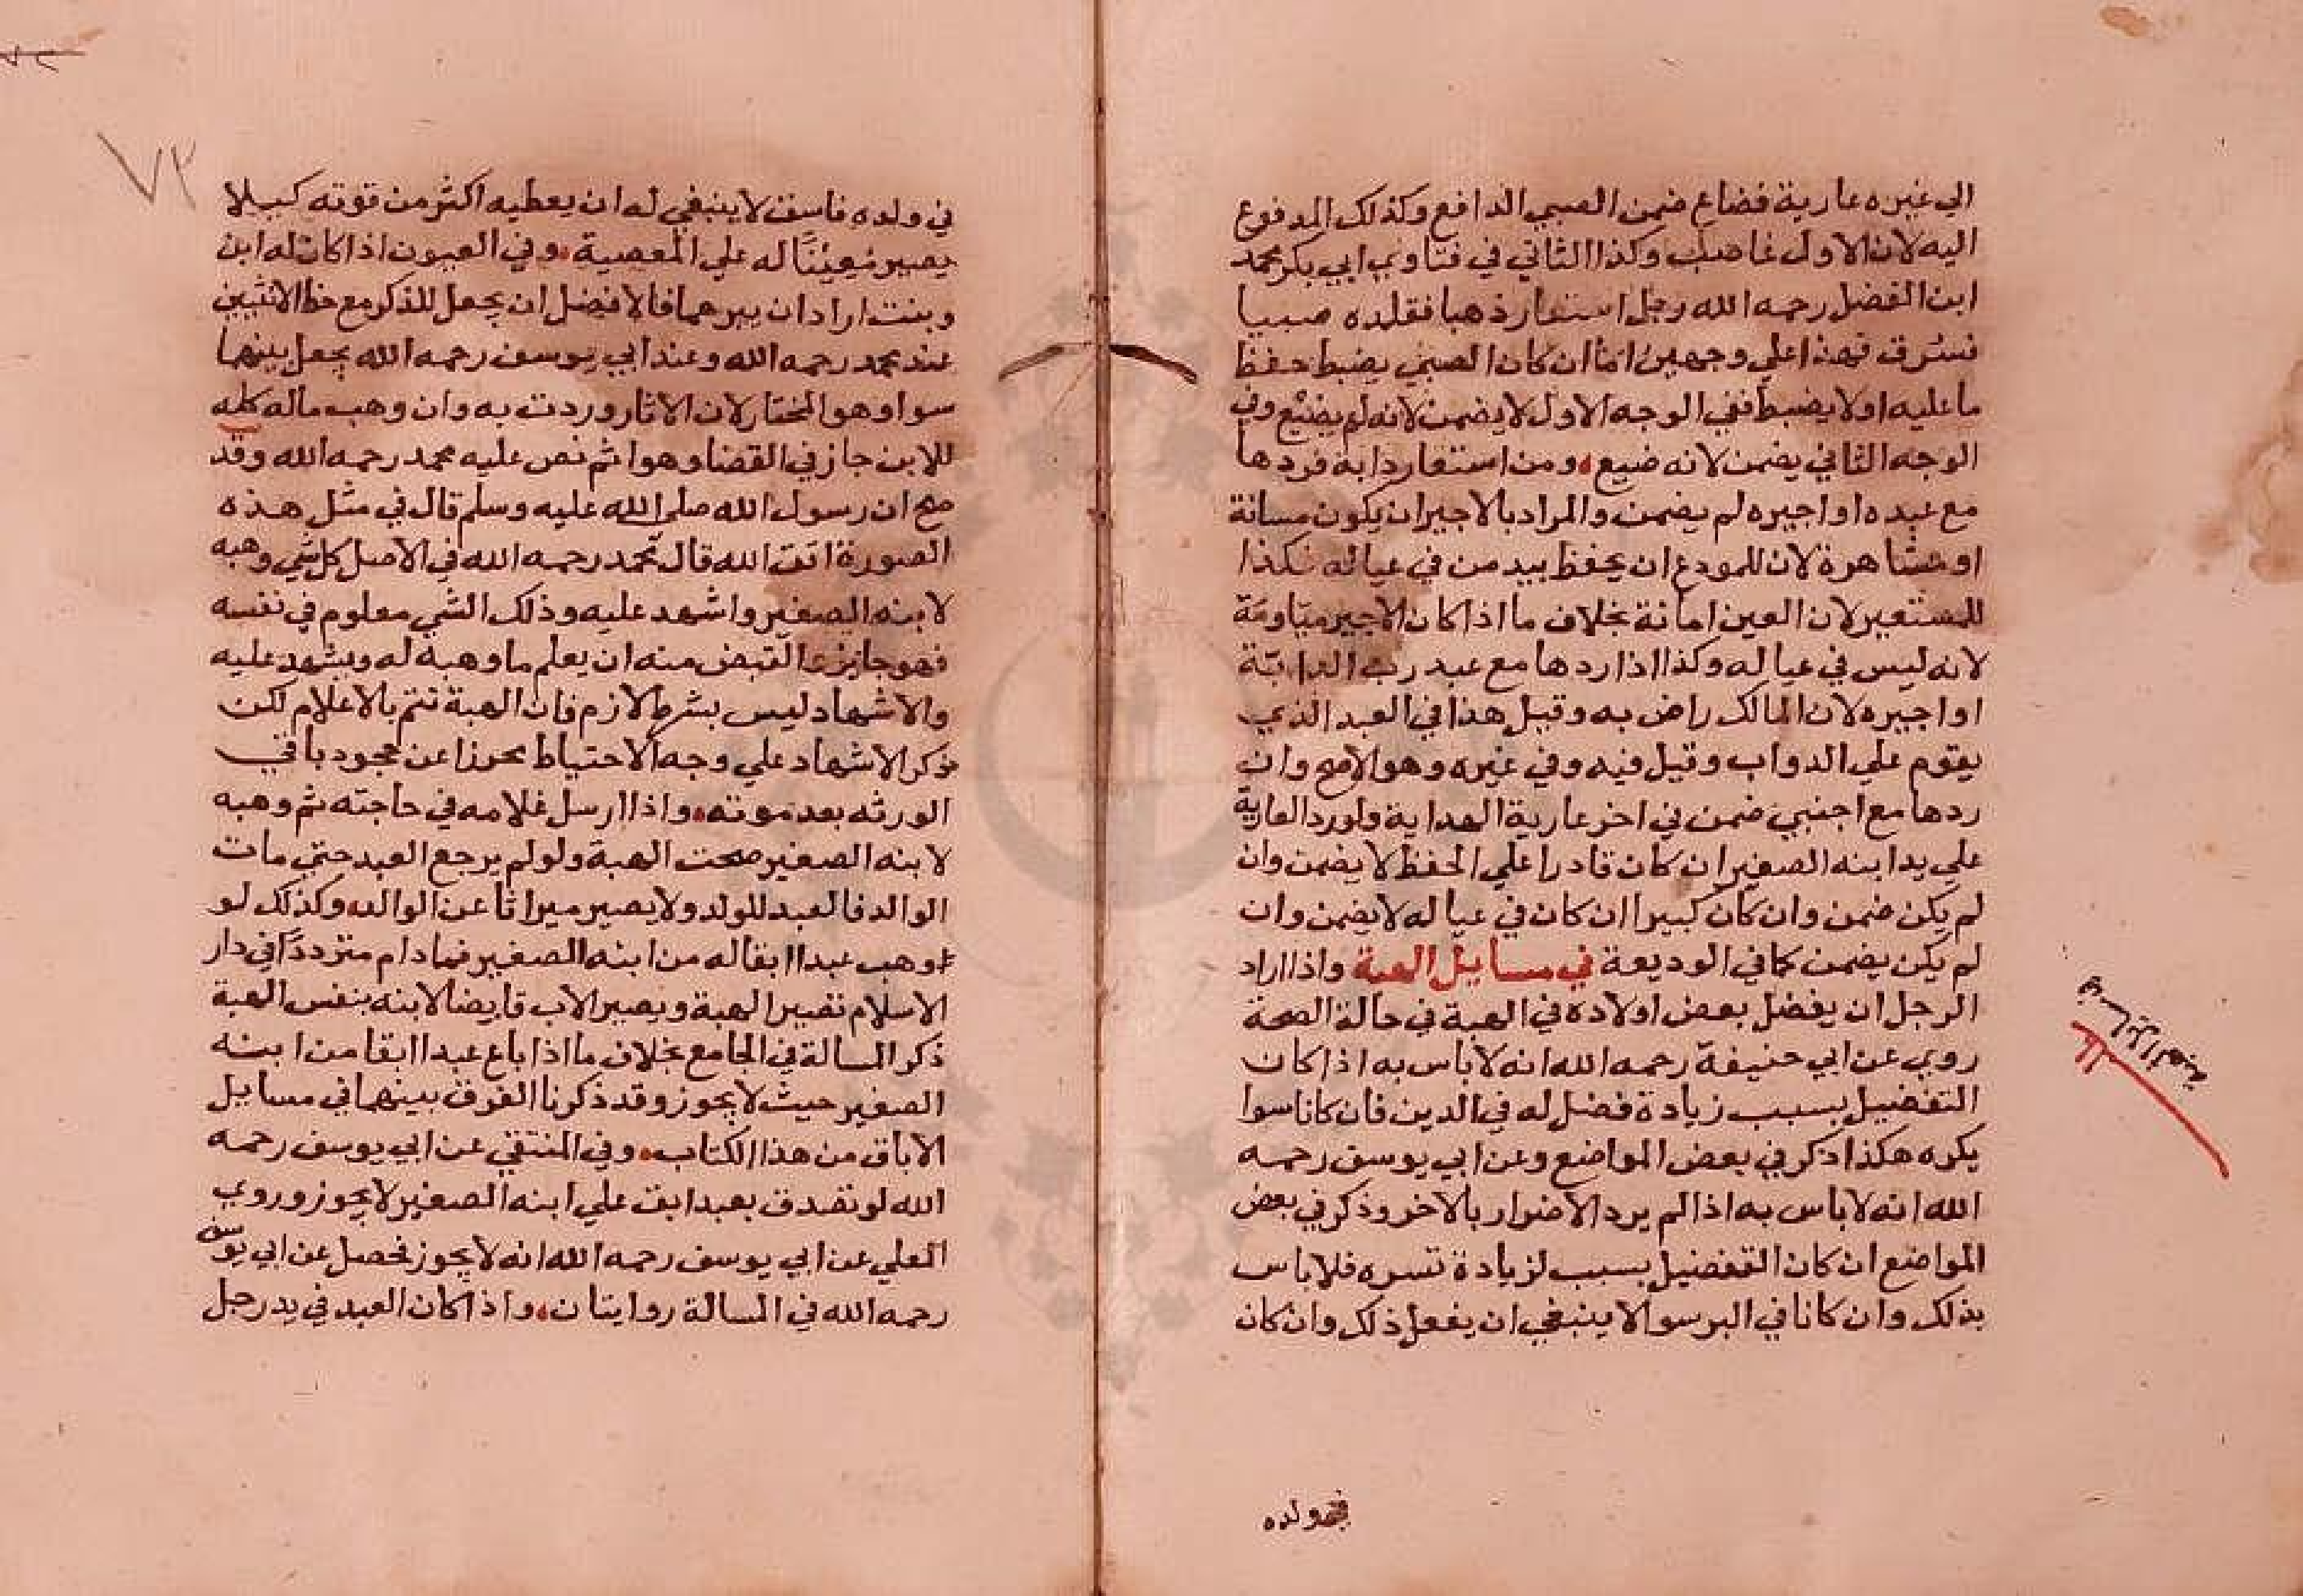 الي غيره عارية فضاع ضمن الصبي الدافع وكذلك المدفوع
اليه لان الاول غاصب وكذا الثاني في فتاوي ابي بكر محمد
ابن الفضل رحمه الله رجل استعار ذهبا فقلده صبيا
فسرق فهذا علي وجهين اما ان كان الصبي يضبط حفظ
ما عليه او لا يضبط ففي الوجه الاول لا يضمن لانه لم يضيع وفي
الوجه الثاني يضمن لانه ضيع ومن استعار دابة فردها
مع عبده او اجيره لم يضمن والمراد بالاجير ان يكون مسانة
او مشاهرة لان للمودع ان يحفظ بيد من في عياله فكذا
للمستعير لان العين امانة بخلاف ما اذا كان الاجير مياومة
لانه ليس في عياله وكذا اذا ردها مع عبد رب الدابة
او اجيره لان المالك راض به وقيل هذا في العبد الذي
يقوم علي الدواب وقيل فيه وفي غيره وهو الاصح وان
ردها مع اجنبي ضمن في اخر عارية الهداية ولو رد العارية
علي يد ابنه الصغير ان كان قادرا علي الحفظ لا يضمن وان
لم يكن ضمن وان كان كبيرا ان كان في عياله لا يضمن وان
لم يكن يضمن كما في الوديعة في مسايل الهبة واذا اراد
الرجل ان يفضل بعض اولاده في الهبة في حالة الصحة
روي عن ابي حنيفة رحمه الله انه لا باس به اذا كان
التفضيل بسبب زيادة فضل له في الدين فان كانا سوا
يكره هكذا ذكر في بعض المواضع وعن ابي يوسف رحمه
الله انه لا باس به اذا لم يرد الاضرار بالاخر وذكر في بعض
المواضع ان كان التفضيل بسبب لزيادة تسره فلا باس
بذلك وان كانا في البر سوا لا ينبغي ان يفعل ذلك وان كان
في مسايل الهبة
في ولده
٧٢
في ولده فاسق لا ينبغي له ان يعطيه اكثر من قوته كيلا
يصير معينا له علي المعصية وفي العيون اذا كان له ابن
وبنت اراد ان يبرهما فالافضل ان يجعل للذكر مع حظ الانثيين
عند محمد رحمه الله وعند ابي يوسف رحمه الله يجعل بينهما
سوا وهو المختار لان الاثار وردت به وان وهب ماله كله
للابن جاز في القضا وهو اثم نص عليه محمد رحمه الله وقد
صح ان رسول الله صلى الله عليه وسلم قال في مثل هذه
الصورة اتق الله قال محمد رحمه الله في الاصل كل شي وهبه
لابنه الصغير واشهد عليه وذلك الشي معلوم في نفسه
فهو جايز القبض منه ان يعلم ما وهبه له ويشهد عليه
والاشهاد ليس بشرط لازم فان الهبة تتم بالاعلام لكن
ذكر الاشهاد علي وجه الاحتياط تحرزا عن جحود باقي
الورثه بعد موته واذا ارسل غلامه في حاجته ثم وهبه
لابنه الصغير صحت الهبة ولو لم يرجع العبد حتي مات
الوالد فالعبد للولد ولا يصير ميراثا عن الوالد وكذلك لو
وهب عبدا ابقا له من ابنه الصغير فما دام مترددا في دار
الاسلام تصير الهبة ويصير الاب قابضا لابنه بنفس الهبة
ذكر المسالة في الجامع بخلاف ما اذا باع عبدا ابقا من ابنه
الصغير حيث لا يجوز وقد ذكرنا الفرق بينهما في مسايل
الاباق من هذا الكتاب وفي المنتقي عن ابي يوسف رحمه
الله لو تصدق بعبد ابق علي ابنه الصغير لا يجوز وروي
المعلي عن ابي يوسف رحمه الله انه لا يجوز فحصل عن ابي يوسف
رحمه الله في المسالة روايتان واذا كان العبد في يد رجل